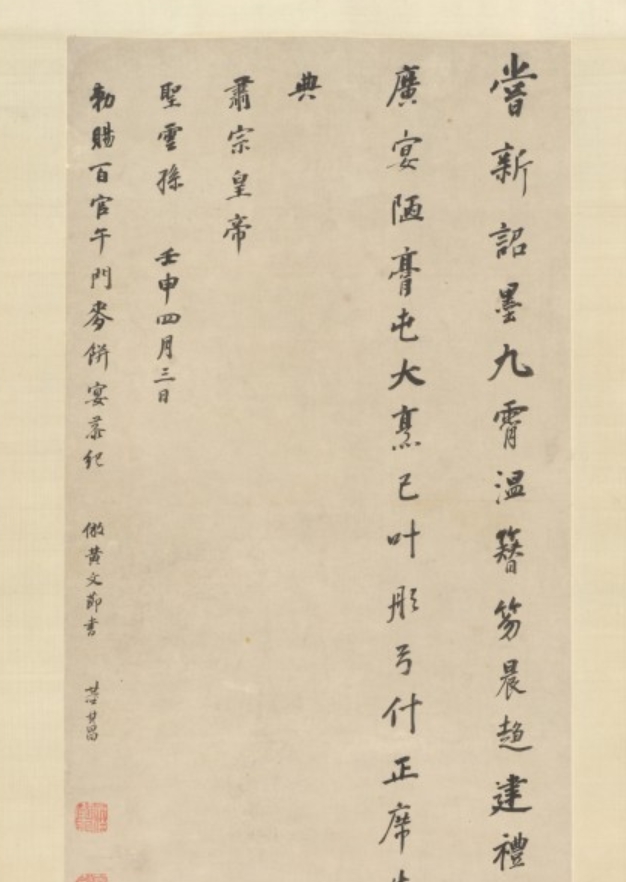 嘗新詔墨九霄溫簪笏晨趨建禮
廣宴陋膏屯大烹已叶彤弓什正席
典
肅宗皇帝
聖雲孫 壬申四月三日
勅賜百官午門麥餅宴恭紀 倣黃文節書 其昌